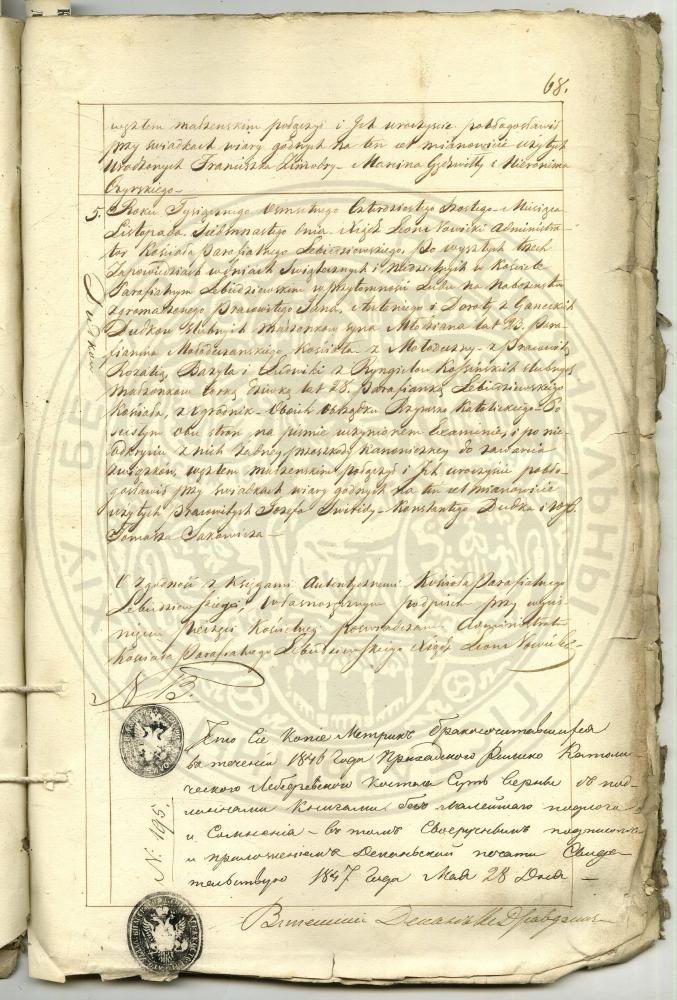 68.
węzłem małżeńskim połączył i Ich uroczyście pobłogosławił
przy świadkach wiary godnych na ten cel mianowicie użytych
Urodzonych Franciszka Marcina i Hieronima
5. Roku Tysiącznego Osmsetnego Czterdziestego Szóstego Miesiąca
Listopada Siedmnastego dnia Xiądz Leon Nowicki Administra-
tor Kościoła Parafialnego Lebiedziewskiego, po wyszłych trzech
zapowiedziach w dniach Świątecznych i Niedzielnych w Kościele
Parafialnym Lebiedziewskim w przytomności Ludu na Nabożeństwo
zgromadzonego Pracowitego Jana, Antoniego i Doroty z Ganeckich
Dudków ślubnych małżonków syna Młodziana lat 23. Para-
fianina Mołodeczańskiego Kościoła z Mołodeczny - z Pracowitą
Rozalią, Bazyla i Ludwiki z Kosińskich ślubnych
małżonków córką dziewką lat 28. Parafianką Lebiedziewskiego
Kościoła, z Ogrodnik - Oboich obrządku Rzymsko Katolickiego - Po
ścisłym obu stron na piśmie uczynionem Examinie, i po nie-
odkryciu z nich żadnej przeszkody kanonicznej do zawarcia
związków, węzłem małżeńskim połączył i Ich uroczyście pobło-
gosławił przy świadkach wiary godnych na ten cel mianowicie
użytych Pracowitych Józefa Konstantego Dudka i
Tomasza Sakowicza -
Dudków
O zgodności z Księgami Autentycznemi Kościoła Parafialnego
Lebiedziewskiego Własnoręcznym podpisem przy wyciś-
nięciu Pieczęci Kościelnej poswiadczam Administrator
Kościoła Parafialnego Lebiedziewskiego Xiądz Leon Nowicki
N B.
Что Сіе Копіе Метрикъ бракосочитавшихся
въ теченіи 1846 Года Приходскаго Римско Католи-
ческаго Лебедзевскаго Костела Суть Верны съ под-
линными Книгами безъ малейшаго подлога
и Сомненія - въ томъ Своеручнымъ подписомъ
и приложеніемъ Деканьской печати Свиде-
тельствую 1847 Года Мая 28 Дня -
№ 195.
Деканъ